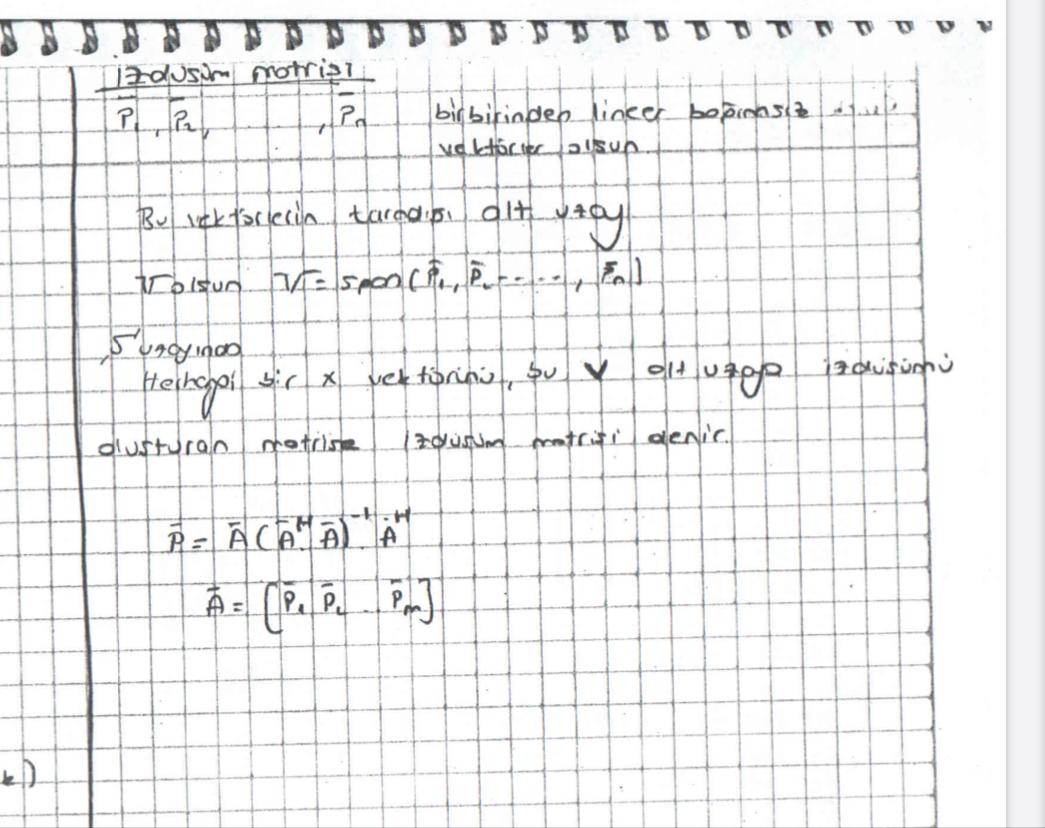 izdüşüm matrisi
P̄₁, P̄₂, , P̄n birbirinden lineer bağımsız
vektörler olsun.
Bu vektörlerin taradığı alt uzay
V olsun V = span(P̄₁, P̄₂ ....., P̄n)
S uzayında
Herhangi bir x vektörünü, bu V alt uzaya izdüşümü
oluşturan matrise izdüşüm matrisi denir.
P̄ = Ā(Āᴴ Ā)⁻¹ Āᴴ
Ā = [P̄₁ P̄₂ .. P̄m]